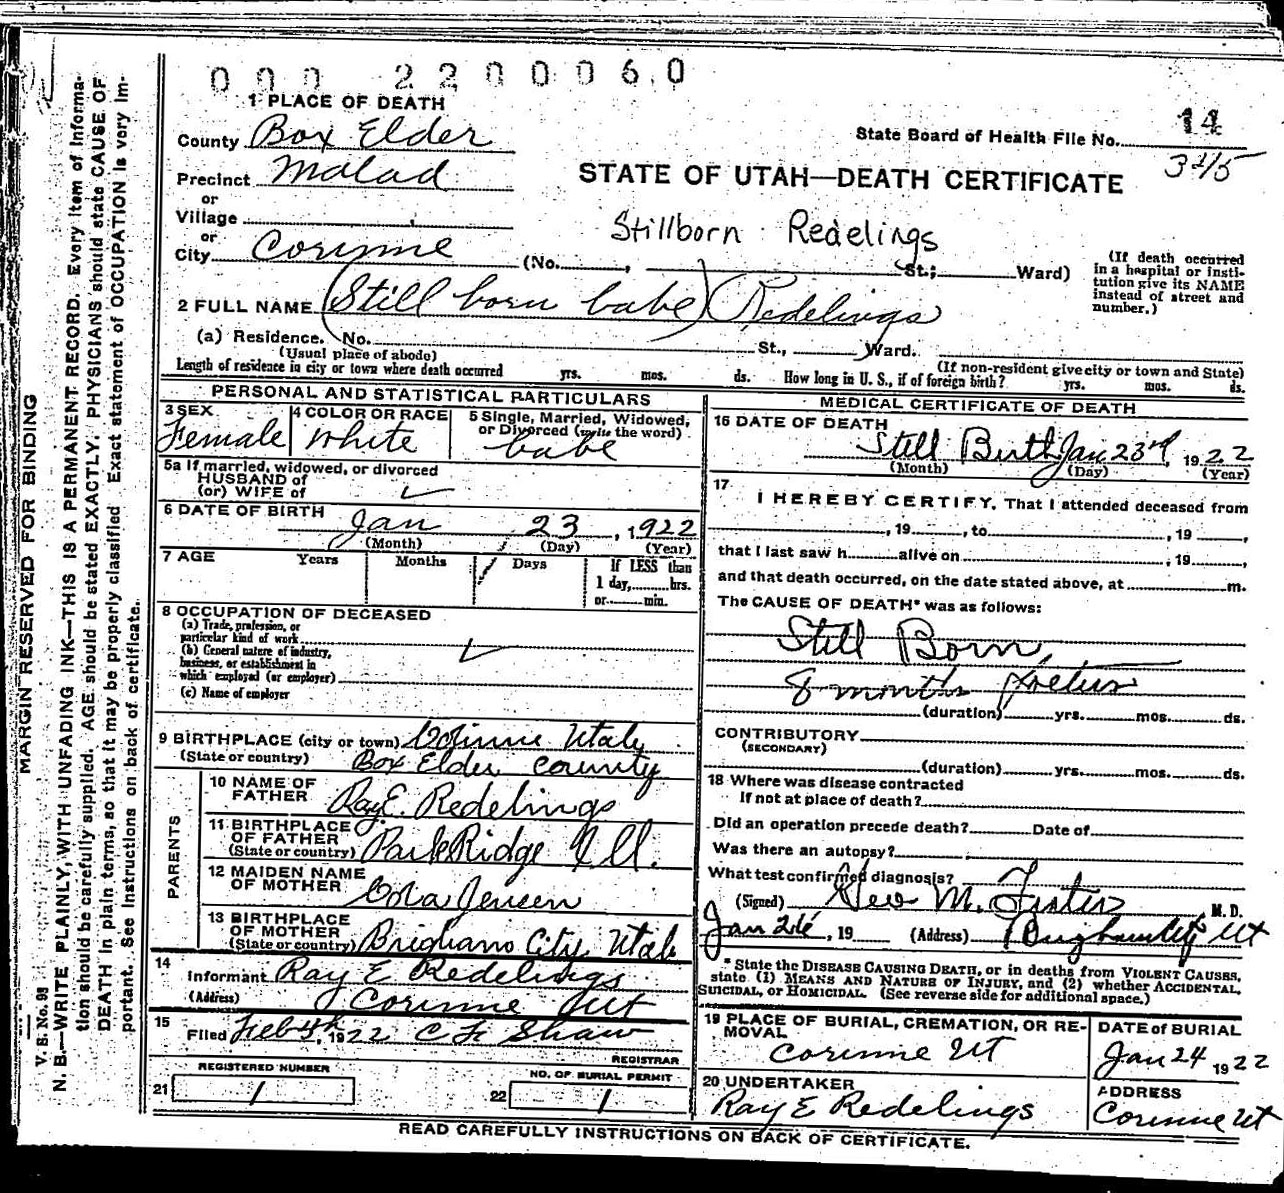 0 0 0 2 2 0 0 0 6 0
1 PLACE OF DEATH
County Box Elder
State Board of Health File No. 14
Precinct Malad
STATE OF UTAH—DEATH CERTIFICATE
or
Village
Stillborn Redelings
or
City Corinne (No. , St.; Ward)
(If death occurred in a hospital or insti-
tution give its NAME
instead of street and
number.)
2 FULL NAME (Still born babe) Redelings
(a) Residence. No. St., Ward.
(Usual place of abode) (If non-resident give city or town and State)
Length of residence in city or town where death occurred yrs. mos. ds. How long in U. S., if of foreign birth? yrs. mos. ds.
PERSONAL AND STATISTICAL PARTICULARS
3 SEX Female
4 COLOR OR RACE White
5 Single, Married, Widowed,
or Divorced (write the word)
babe
5a If married, widowed, or divorced
HUSBAND of
(or) WIFE of ✓
6 DATE OF BIRTH
Jan 23, 1922
(Month) (Day) (Year)
7 AGE Years Months Days If LESS than
1 day, hrs.
or min.
8 OCCUPATION OF DECEASED
(a) Trade, profession, or
particular kind of work
(b) General nature of industry,
business, or establishment in
which employed (or employer) ✓
(c) Name of employer
9 BIRTHPLACE (city or town) Corinne Utah
(State or country) Box Elder County
PARENTS
10 NAME OF
FATHER Ray E. Redelings
11 BIRTHPLACE
OF FATHER
(State or country) Park Ridge Ill.
12 MAIDEN NAME
OF MOTHER Cora Jensen
13 BIRTHPLACE
OF MOTHER
(State or country) Brigham City Utah
14
Informant Ray E Redelings
(Address) Corinne Ut
15
Filed Feb 4th, 1922 C F Shaw
REGISTRAR
REGISTERED NUMBER
21 1
NO. OF BURIAL PERMIT
22 1
MEDICAL CERTIFICATE OF DEATH
16 DATE OF DEATH
Still Birth Jan 23rd, 1922
(Month) (Day) (Year)
17
I HEREBY CERTIFY, That I attended deceased from
, 19 , to , 19 ,
that I last saw h alive on , 19 ,
and that death occurred, on the date stated above, at m.
The CAUSE OF DEATH* was as follows:
Still Born,
8 months foetus
(duration) yrs. mos. ds.
CONTRIBUTORY
(SECONDARY)
(duration) yrs. mos. ds.
18 Where was disease contracted
If not at place of death?
Did an operation precede death? Date of
Was there an autopsy?
What test confirmed diagnosis?
(Signed) Geo M. Fister M. D.
Jan 26, 19 (Address) Brigham City Ut
*State the DISEASE CAUSING DEATH, or in deaths from VIOLENT CAUSES,
state (1) MEANS AND NATURE OF INJURY, and (2) whether ACCIDENTAL,
SUICIDAL, or HOMICIDAL. (See reverse side for additional space.)
19 PLACE OF BURIAL, CREMATION, OR RE-
MOVAL
Corinne Ut
DATE of BURIAL
Jan 24 1922
20 UNDERTAKER
Ray E Redelings
ADDRESS
Corinne Ut
READ CAREFULLY INSTRUCTIONS ON BACK OF CERTIFICATE.
MARGIN RESERVED FOR BINDING
V. S. No. 98
N. B.—WRITE PLAINLY, WITH UNFADING INK—THIS IS A PERMANENT RECORD. Every item of informa-
tion should be carefully supplied. AGE should be stated EXACTLY. PHYSICIANS should state CAUSE OF
DEATH in plain terms, so that it may be properly classified. Exact statement of OCCUPATION is very im-
portant. See instructions on back of certificate.